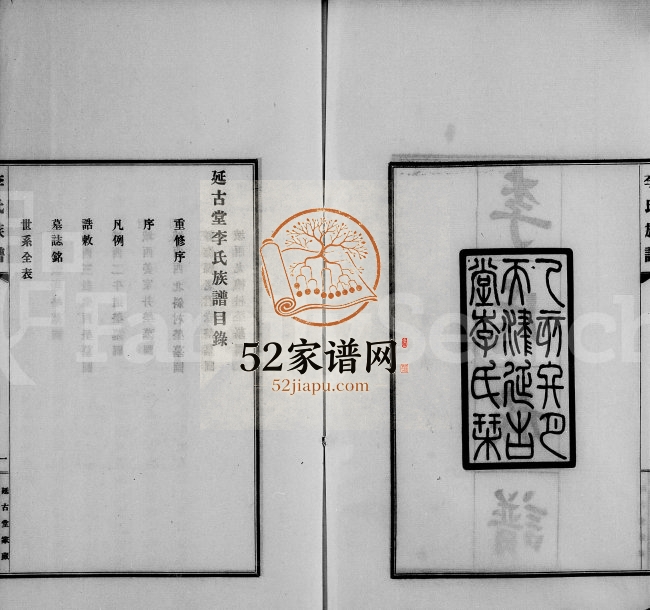 李氏族譜
乙亥月
天津延古
堂李氏栞
延古堂李氏族譜目錄
重修序
序
凡例
誥敕
墓誌銘
世系全表
李氏族譜
一
延古堂家藏
52家谱网
52jiapu.com
FamilySearch